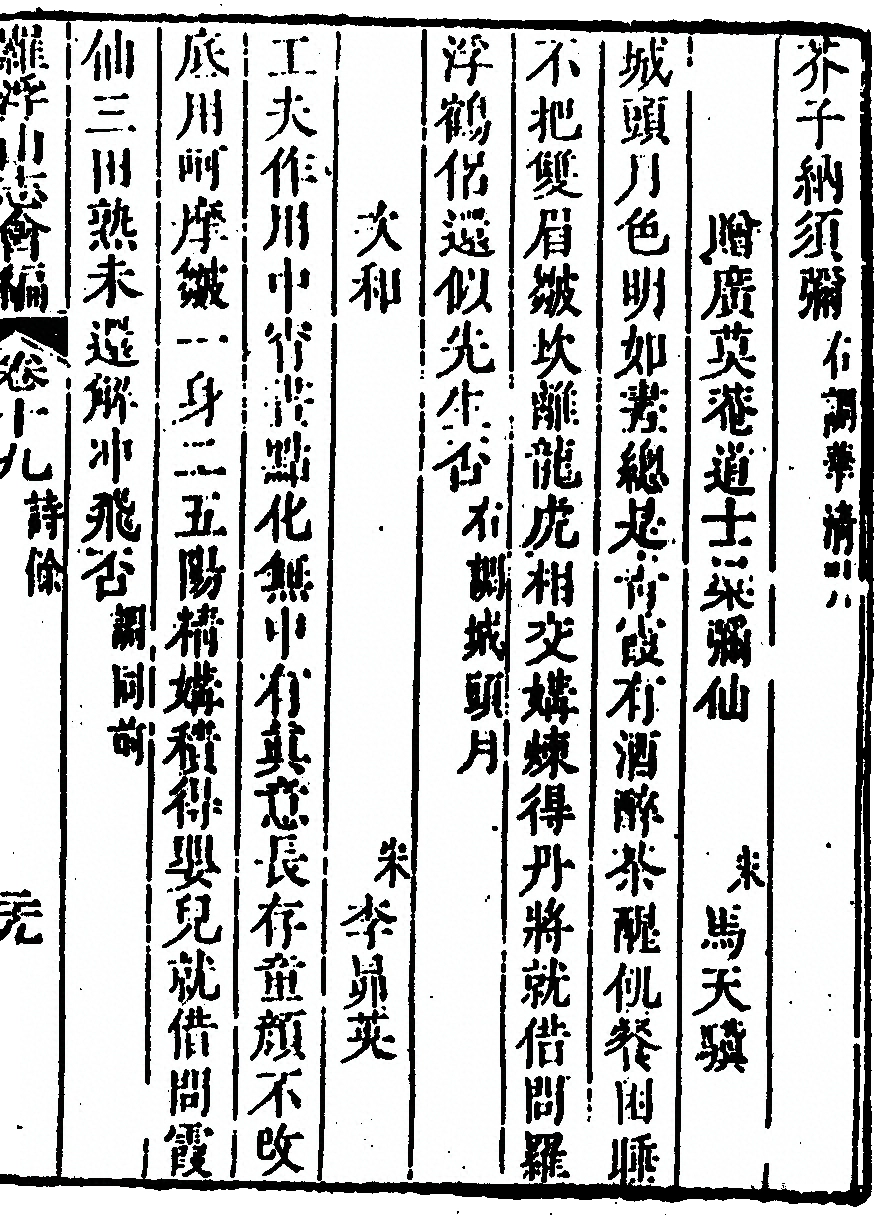 芥子納須彌 右調華清引
贈廣莫菴道士梁彌仙 宋 馬天驥
城頭月色明如晝總是青霞有酒醉茶醒飢餐困睡
不把雙眉皺坎離龍虎相交媾煉得丹將就借問羅
浮鶴侶還似先生否 右調城頭月
次和 宋 李昴英
工夫作用中宵晝點化無中有真意長存童顏不改
底用呵摩皺一身二五陽精媾積得嬰兒就借問霞
仙三田熟未還解冲飛否 調同前
羅浮山志會編 卷十九 詩餘